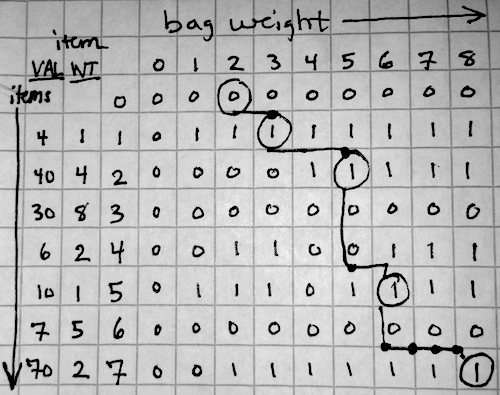 bag weight
item
VAL WT 0 1 2 3 4 5 6 7 8
items 0 0 0 0 0 0 0 0 0 0
4 1 1 0 1 1 1 1 1 1 1 1
40 4 2 0 0 0 0 1 1 1 1 1
30 8 3 0 0 0 0 0 0 0 0 0
6 2 4 0 0 1 1 0 0 1 1 1
10 1 5 0 1 1 1 0 1 1 1 1
7 5 6 0 0 0 0 0 0 0 0 0
70 2 7 0 0 1 1 1 1 1 1 1